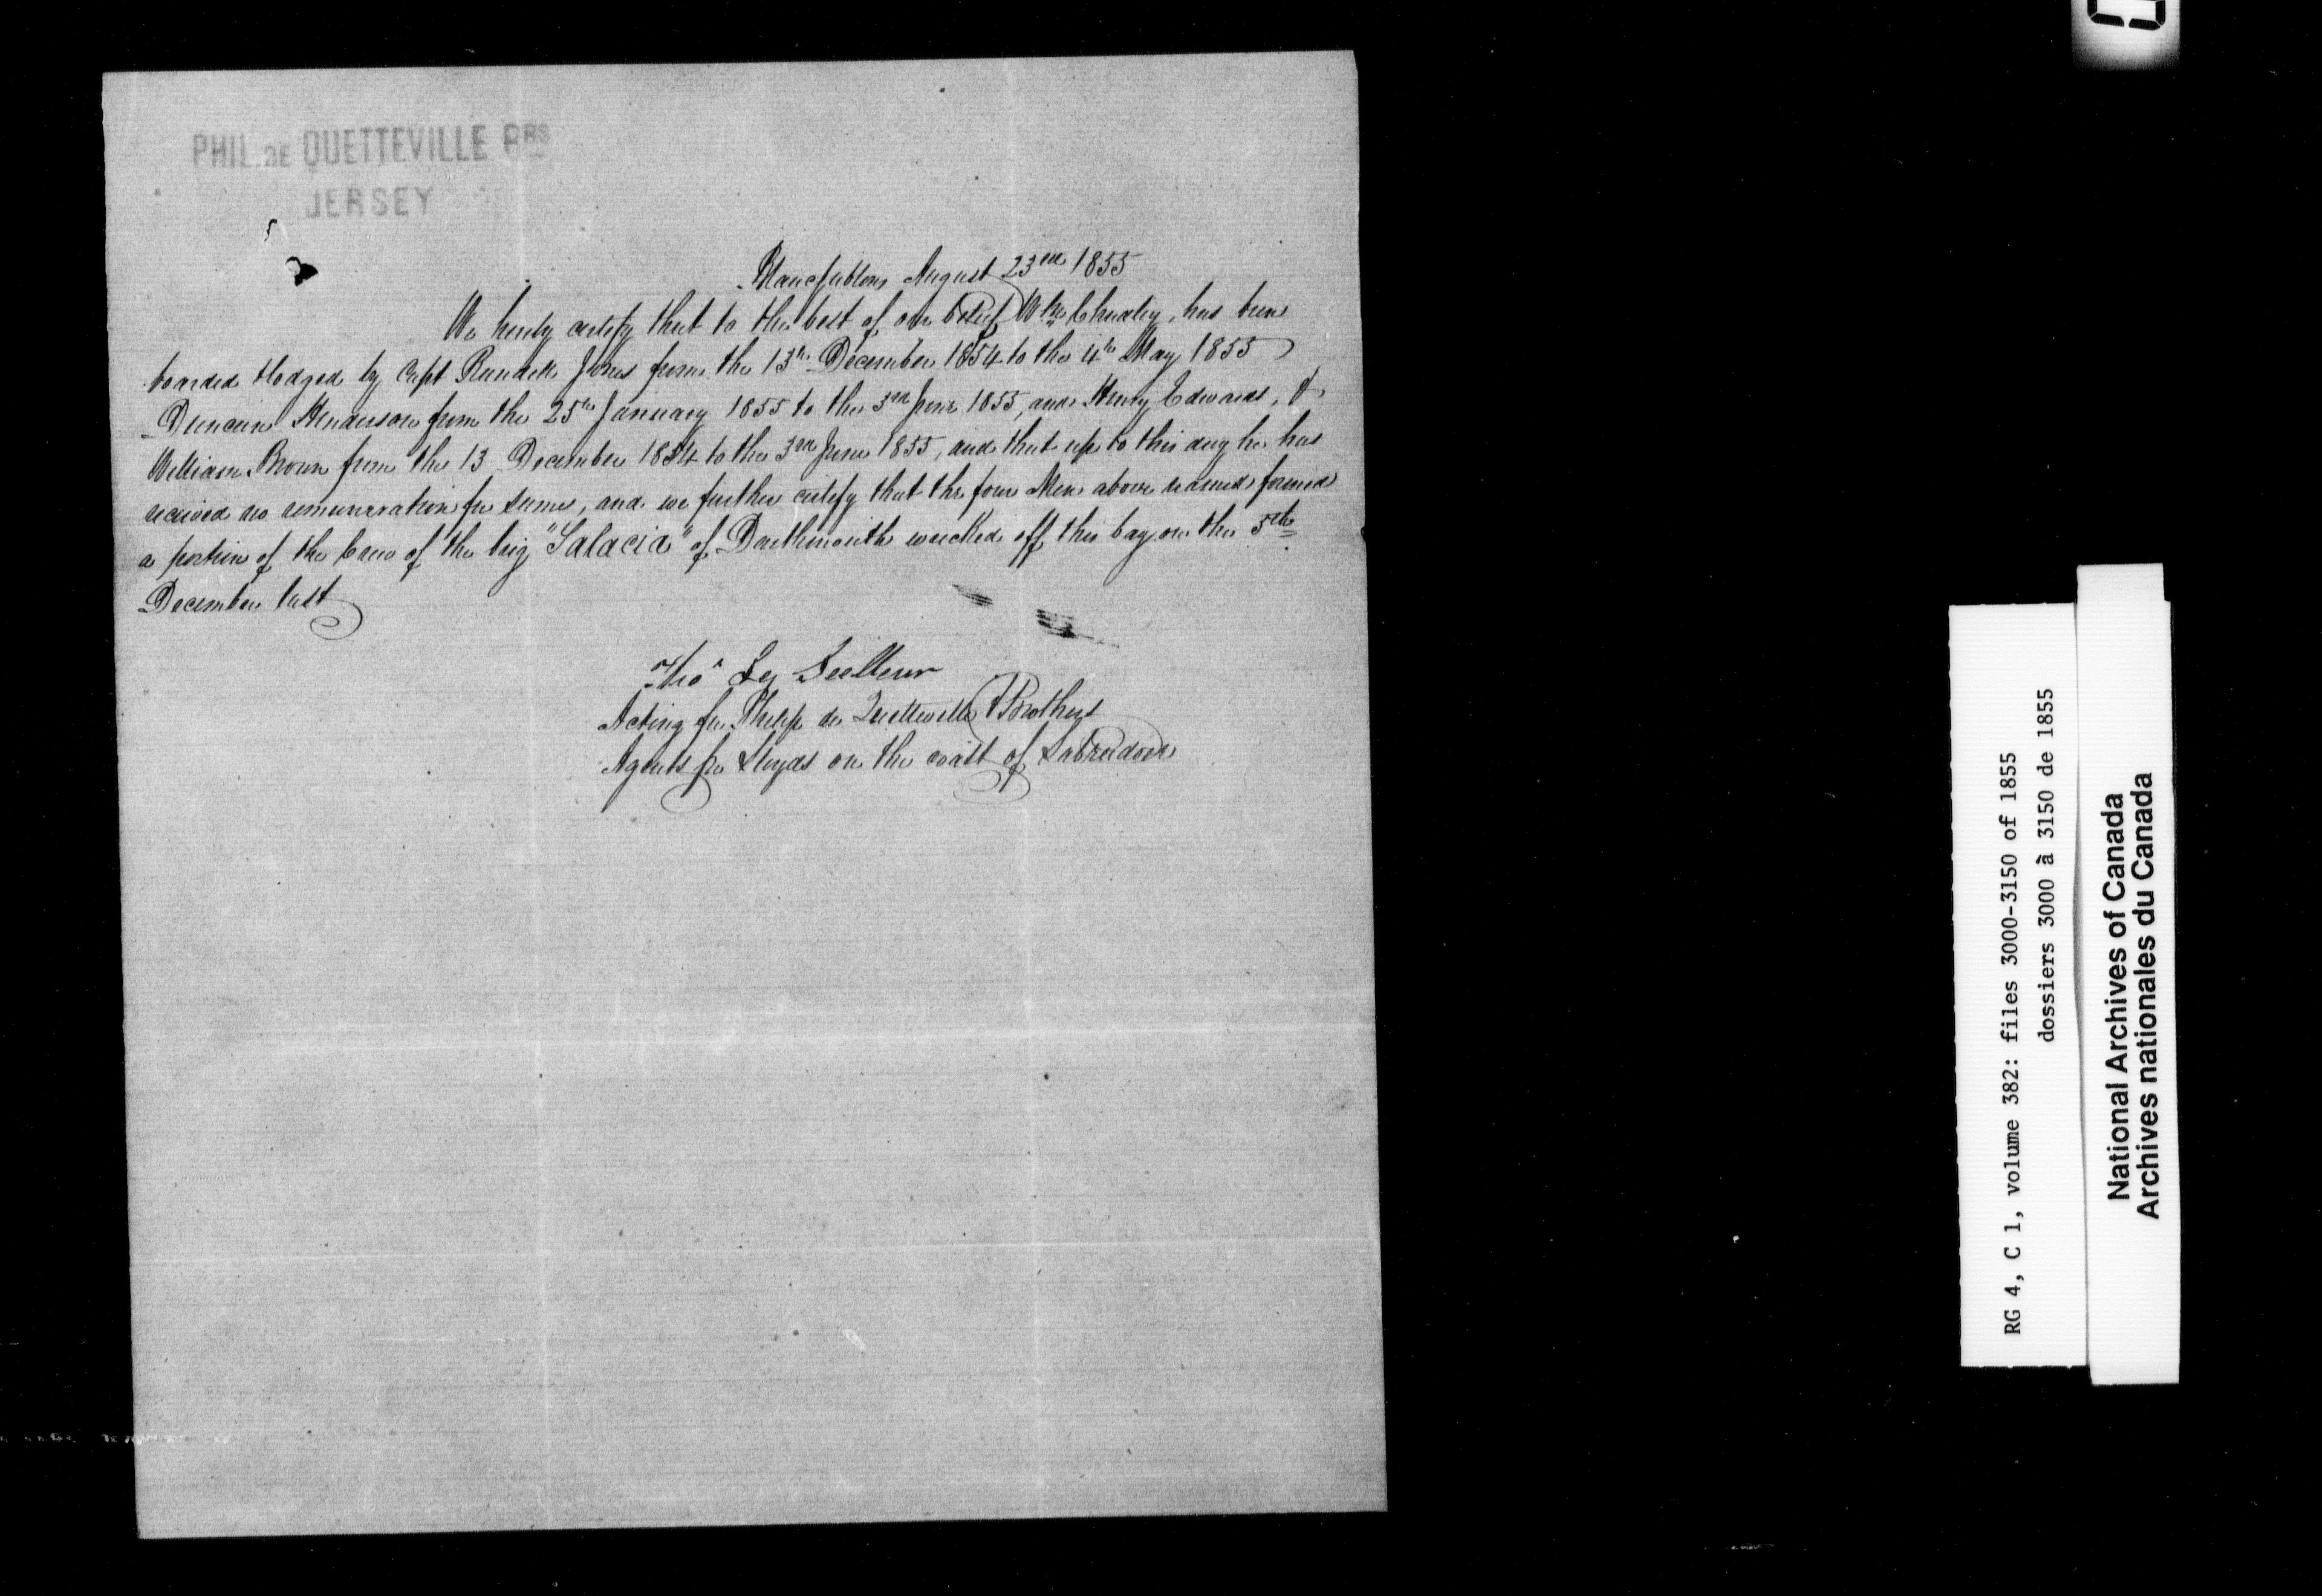 PHIL. DE QUETTEVILLE BRS
JERSEY
Blancsablons August 23rd 1855
We hereby certify that to the best of our belief Wm Chudley, has been
boarded & lodged by Capt Randle Jones from the 13th December 1854 to the 4th May 1855
Duncan Henderson from the 25th January 1855 to the 3rd June 1855, and Henry Edwards, &
William Brown from the 13 December 1854 to the 3rd June 1855, and that up to this day he has
received no remuneration for same, and we further certify that the four Men above named formed
a portion of the Crew of the brig "Salacia" of Dartmouth wrecked off this bay on the 5th
December last
Thos Le Seelleur
Acting for Philip de Quetteville & Brothers
Agents for Lloyds on the coast of Labrador
RG 4, C 1, volume 382: files 3000-3150 of 1855
dossiers 3000 à 3150 de 1855
National Archives of Canada
Archives nationales du Canada